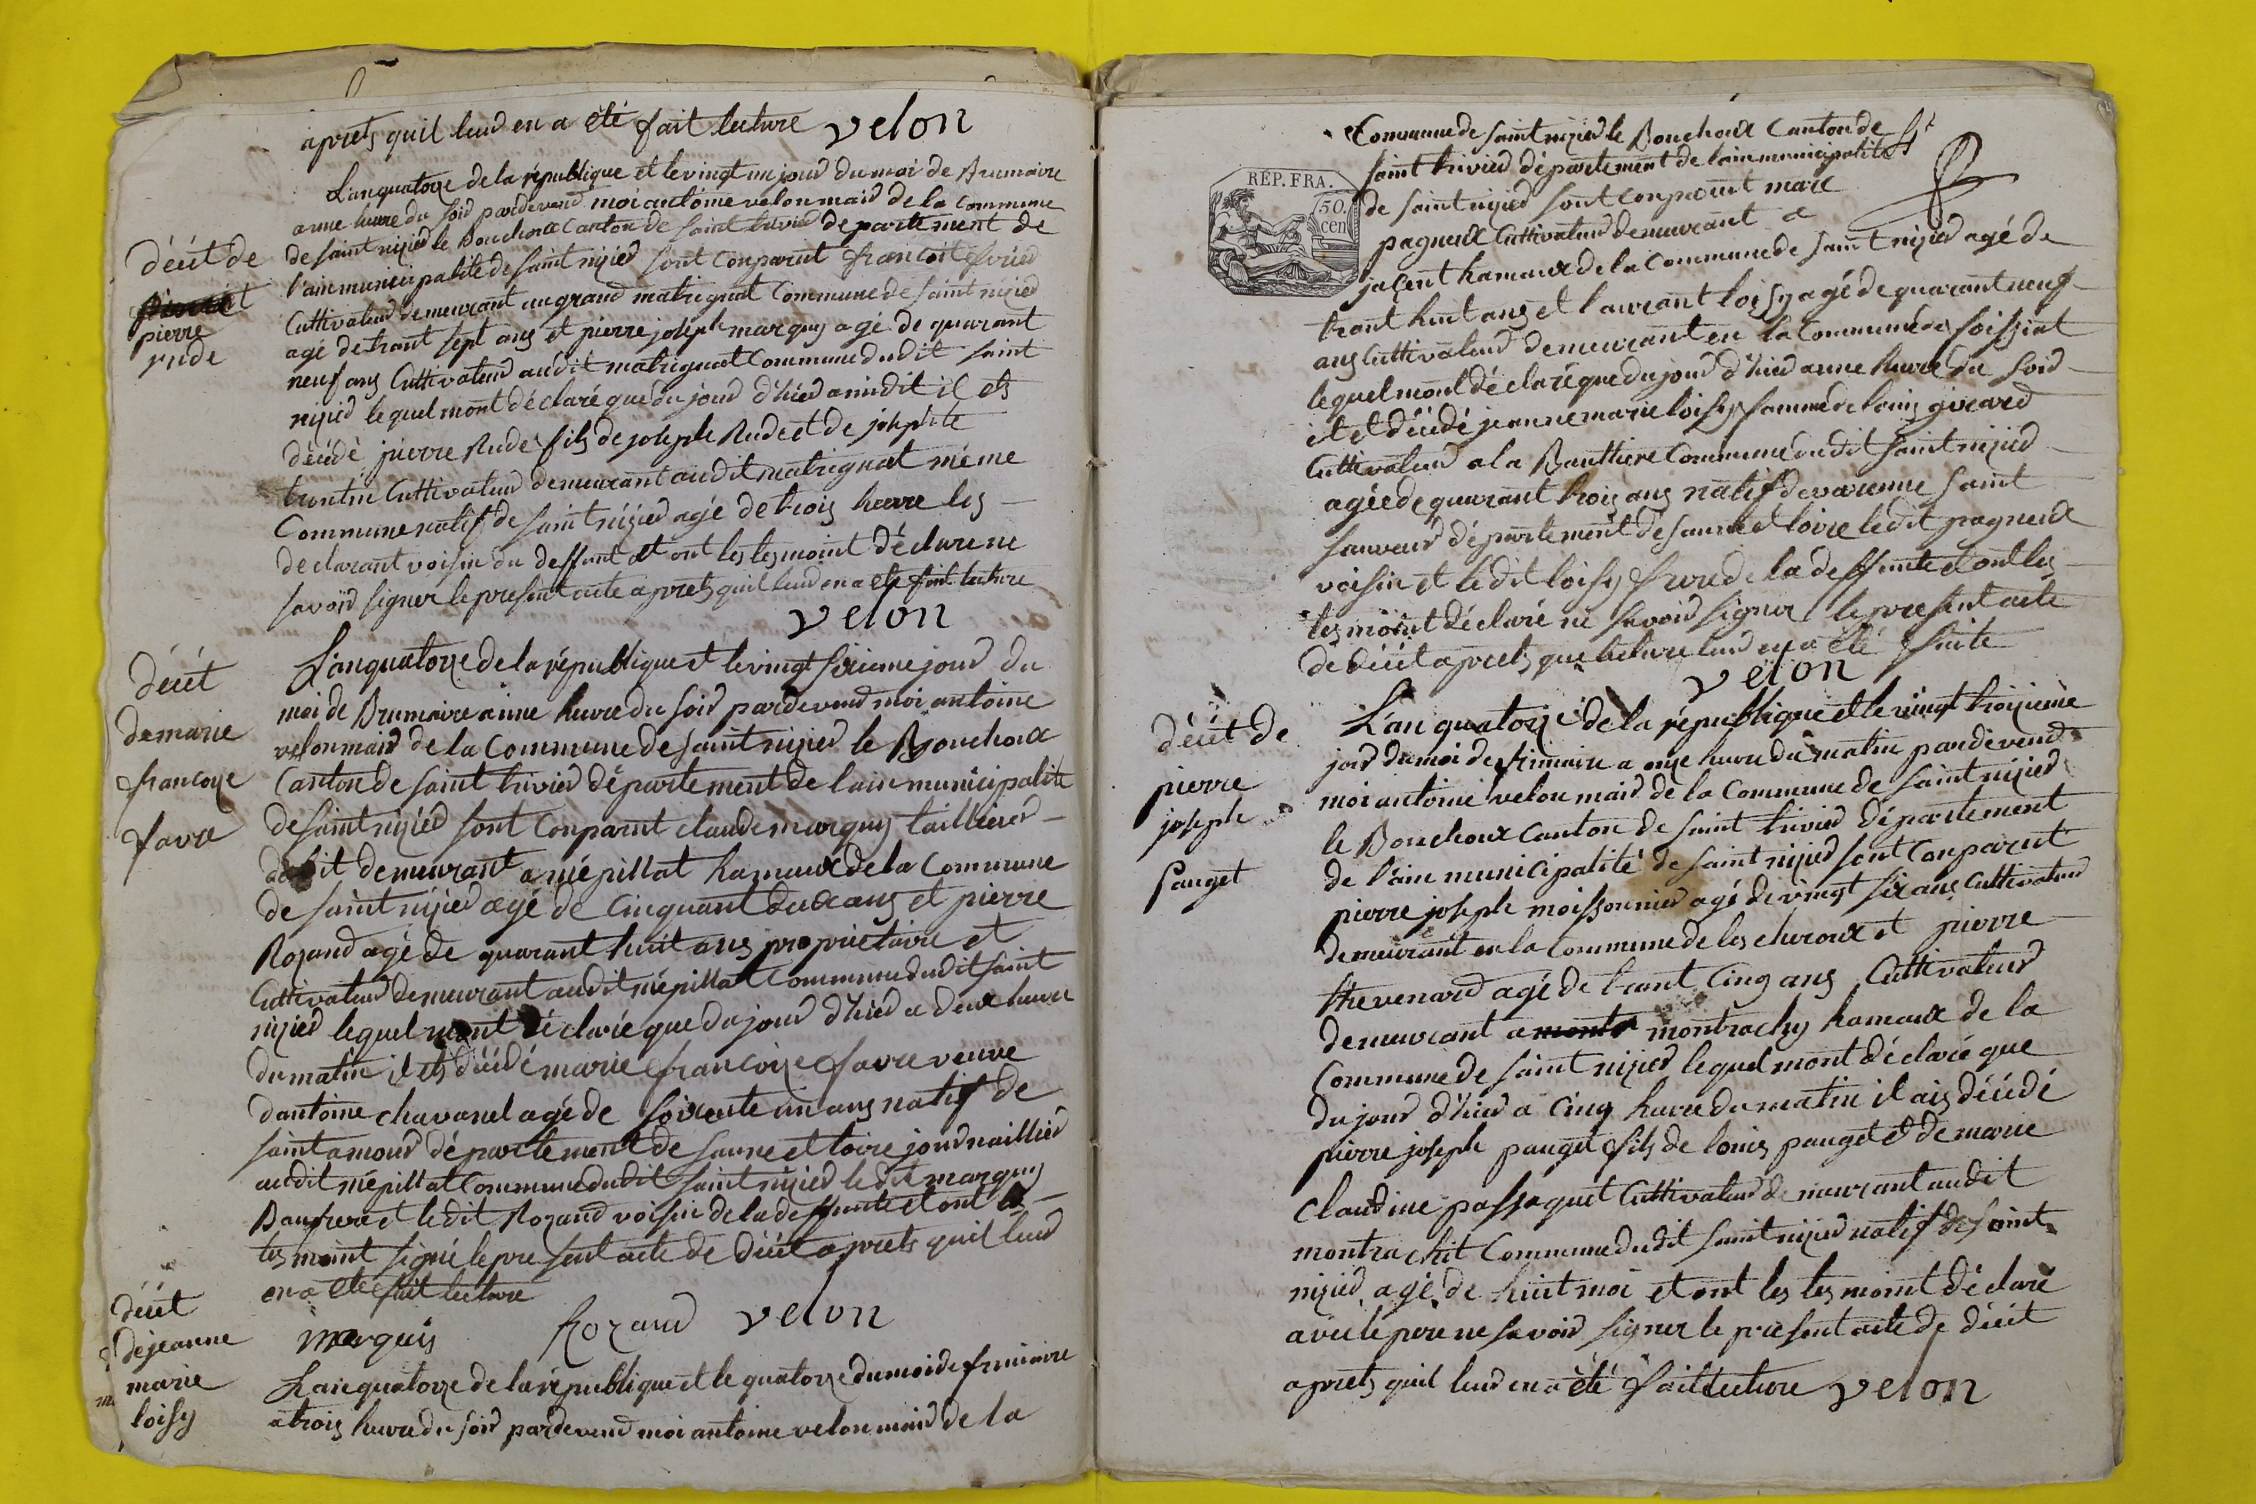 aprets quil leur en a été fait lecture velon
L'anquatorze de la république et le vingt un jour du moi de Brumaire
a une heure du soir pardevend moi antoine velon maid de la commune
de saint nizied le Bouchoux Canton de saint trivied departement de
l'ain municipalite de saint nizied sont Conparut francoit
Cultivateur demeurant au grand matrignat Commune de saint nizied
agé de trant sept ans et pierre joseph marquy agé de quarant
neuf ans Cultivateur audit matrignat Commune dudit saint
nizied lequel mont déclaré que du jour d'hied a midit il ets
décédé pierre Rude fils de joseph Rude et de josephte
Cultivateur demeurant audit matrignat même
Commune natif de saint nizied agé de trois heure les
declarant voisin du deffunt et ont les tesmoint déclare ne
savoir signer le present acte aprets quil leur en a ete fait lecture
velon
décét de
pierre
rude
L'anquatorze de la république et le vingt sixieme jour du
moi de Brumaire a une heure du soir pardevend moi antoine
velon maid de la Commune de saint nizied le Bouchoux
Canton de saint trivied département de lain municipalite
de saint nizied sont Conparut claude marquy taillieur
dabit demeurant a mépillat hamaux de la Commune
de saint nizied agé de Cinquant deux ans et pierre
Rozand agé de quarant huit ans propriétaire et
Cultivateur demeurant audit mépillat Commune dudit saint
nizied lequel mont déclarée que du jour d'hied a deux heure
du matin il ets décédé marie francoize favre veuve
dantoine chavanel agé de soixente un ans natif de
saint amour département de saune et loire journaillier
audit mépillat Commune dudit saint nizied ledit marquy
Baufrere et ledit Rozand voisin de la deffunte et ont les
tesmoint signé le present acte de décét aprets quil leur
en a ete fait lecture
marquis Rozand velon
décét
de marie
francoize
favre
L'anquatorze de la république et le quatorze du moi de frimaire
a trois heure du soir pardevend moi antoine velon maid de la
décét
de jeanne
marie
loisy
Commune de saint nizied le Bouchoux Canton de
saint trivied département de lain municipalité
de saint nizied sont Conparut marc
pagneux Cultivateur demeurant a
jaçent hamaux de la Commune de saint nizied agé de
trant huit ans et laurant loisy agé de quarant neuf
ans Cultivateur demeurant en la Commune de soissiat
lequel mont déclaré que du jour d'hier a une heure du soir
il et décédé jeanne marie loisy famme de louis girard
Cultivateur a la Bauttiere Commune dudit saint nizied
agée de quarant trois ans natif de varenne saint
sauveur département de saune et loire ledit pagneux
voisin et ledit loisy frere de la deffunte et ont les
tesmoint déclaré ne savoir signer le present acte
de décét aprets que lecture leur en a été faite
velon
RÉP. FRA.
50.
cen
L'anquatorze de la république et le vingt troizieme
jour du moi de frimaire a onze heure du matin pardevend
moi antoine velon maid de la Commune de saint nizied
le Bouchoux canton de saint trivied département
de l'ain municipalité de saint nizied sont Conparut
pierre joseph moissonnier agé de vingt six ans Cultivateur
demeurant en la Commune de les cheroux et pierre
thevenard agé de trant Cinq ans Cultivateur
demeurant a montr montrachy hamaux de la
Commune de saint nizied lequel mont déclaré que
du jour d'hier a Cinq heure du matin il ais décédé
pierre joseph pauget fils de louis pauget et de marie
claudine passaquet Cultivateur demeurant audit
montrachit Commune dudit saint nizied natif de saint
nizied agé de huit moi et ont les tesmoint déclaré
avec le pere ne savoir signer le présent acte de décét
aprets quil leur en a été fait lecture velon
décét de
pierre
joseph
pauget